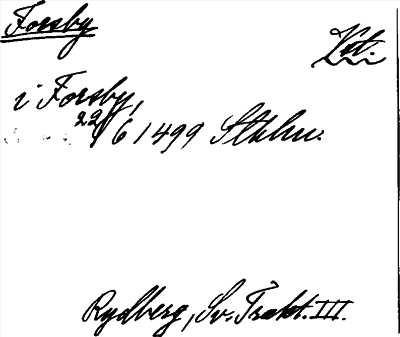 Forsby
Vstm.
i Forsby,
22/6 1499 Sthlm.
Rydberg, Sv. Trakt. III.